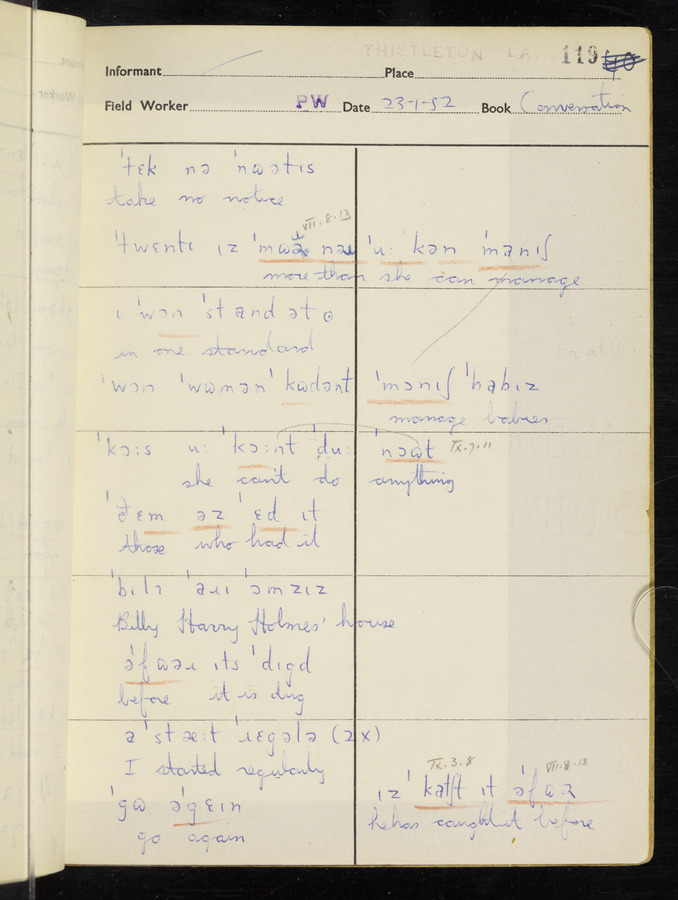 THISTLETON LA. 119
Informant Place
Field Worker PW Date 23-1-52 Book Conversation
ˈtɛk nə ˈnɷətɪs
take no notice
VII. 8. 13
ˈtwɛntɪ ɪz
more than she can manage
ɪ ˈwɔn ˈstandəd
in one standard
ˈwɔn ˈwɷmən ˈkɷdənt ˈmanɪʃ ˈbabɪz
manage babies
ˈkɔːs uː ˈkɔːnt ˈduː ˈnɔɷt IX. 7. 11
she can't do anything
ˈðɛm əz ˈɛd ɪt
those who had it
ˈbɪlɪ ˈaɹɪ ˈɔmzɪz
Billy Harry Holmes' house
əˈfɷəɹ ɪts ˈdɪgd
before it is dug
a ˈstæːt ˈɹɛgələ (2x)
I started regularly
IX. 3. 8 VII. 8. 13
ˈgɷ əˈgɛɪn ɪz ˈkatʃt ɪt əˈfɷə
he has caught it before
go again